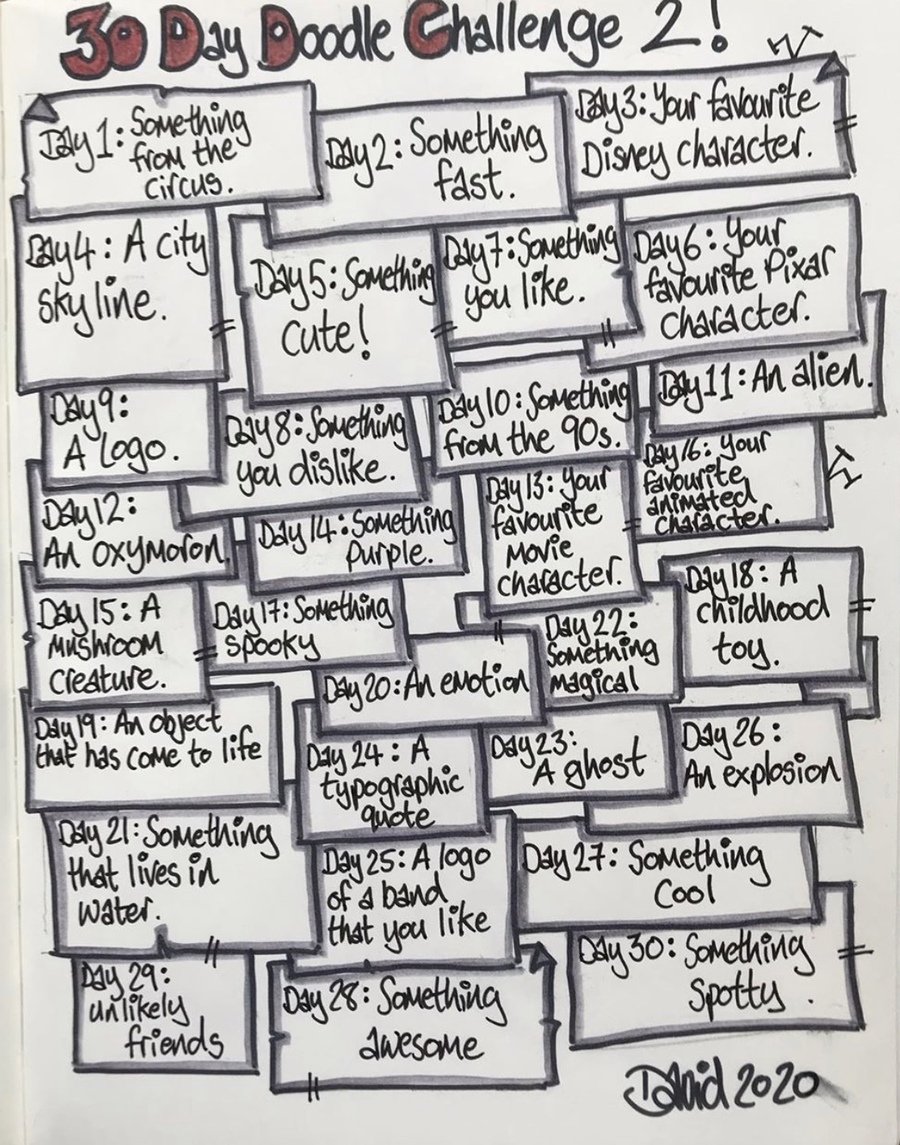 30 Day Doodle Challenge 2!
Day 1: Something
from the
circus.
Day 2: Something
fast.
Day 3: Your favourite
Disney character.
Day 4: A city
skyline.
Day 5: Something
Cute!
Day 7: Something
you like.
Day 6: Your
favourite Pixar
character.
Day 9:
A Logo.
Day 8: Something
you dislike.
Day 10: Something
from the 90s.
Day 11: An alien.
Day 12:
An oxymoron.
Day 14: Something
purple.
Day 13: Your
favourite
Movie
character.
Day 16: Your
favourite
animated
character.
Day 15: A
mushroom
creature.
Day 17: Something
spooky
Day 20: An emotion
Day 22:
Something
magical
Day 18: A
childhood
toy.
Day 19: An object
that has come to life
Day 24: A
typographic
quote
Day 23:
A ghost
Day 26:
An explosion
Day 21: Something
that lives in
water.
Day 25: A logo
of a band
that you like
Day 27: Something
Cool
Day 29:
unlikely
friends
Day 28: Something
awesome
Day 30: Something
Spotty.
David 2020